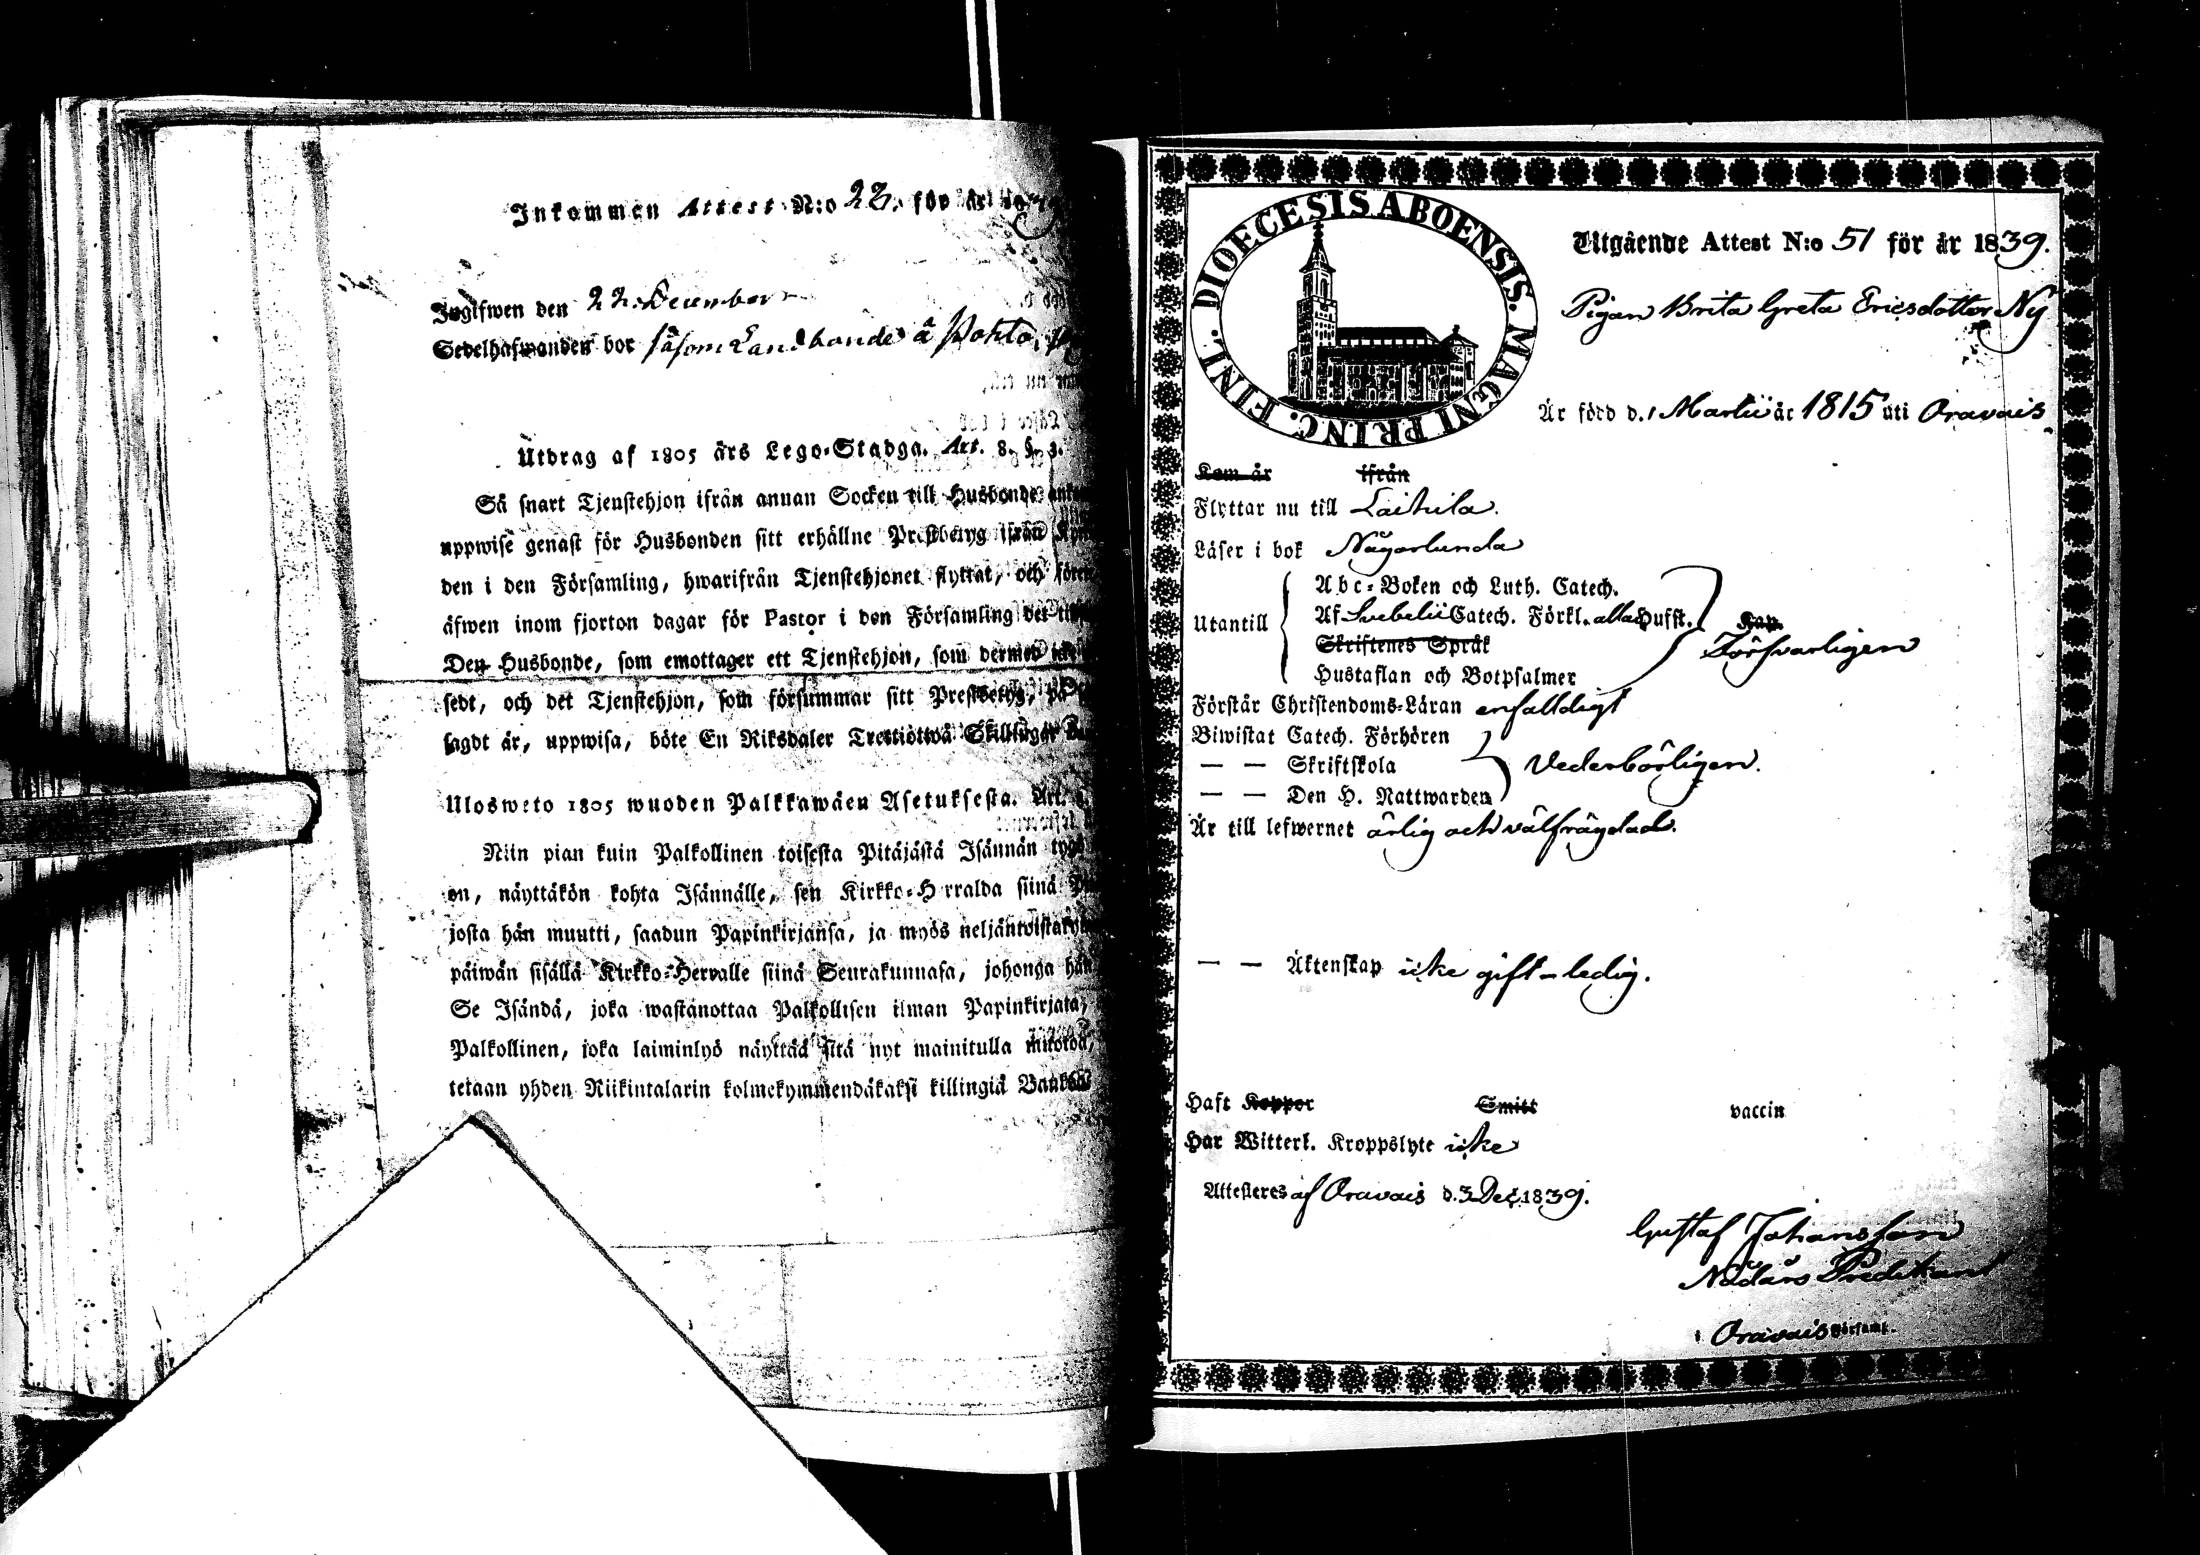 Inkommen Attest N:o 22. för år
Ingifwen den 22. December
Sedelhafwanden bor såsom Landbonde å Pohto,
Utdrag af 1805 års Lego-Stadga. Art. 8. §. 3.
Så snart Tjenstehjon ifrån annan Socken till Husbonde
uppwise genast för Husbonden sitt erhållne Prestbetyg ifrån
den i den Församling, hwarifrån Tjenstehjonet flyttat, och
äfwen inom fjorton dagar för Pastor i den Församling det
Den Husbonde, som emottager ett Tjenstehjon, som dermed
sedt, och det Tjenstehjon, som försummar sitt Prestbetyg, på
sagdt är, uppwisa, böte En Riksdaler Trettiotwå Skillingar
Ulosweto 1805 wuoden Palkkawäen Asetuksesta. Art.
Niin pian kuin Palkollinen toisesta Pitäjästä Isännän
on, näyttäkön kohta Isännälle, sen Kirkko-Herralda siinä
josta hän muutti, saadun Papinkirjansa, ja myös
päiwän sisällä Kirkko-Herralle siinä Seurakunnasa, johonga hän
Se Isändä, joka wastanottaa Palkollisen ilman Papinkirjata,
Palkollinen, joka laiminlyö näyttää sitä nyt mainitulla
tetaan yhden Riikintalarin kolmekymmendäkaksi killingiä
DIOECESIS ABOENSIS. MAGNI PRINC. FINL.
Utgående Attest N:o 51 för år 1839.
Pigan Brita Greta Ericsdotter Ny
Är född d. 1 Martii år 1815 uti Oravais
Kom år ifrån
Flyttar nu till Laihila.
Läser i bok Någorlunda
Abc-Boken och Luth. Catech.
Utantill Af Svebelii Catech. Förkl. alla Hufst. Kap.
Skriftenes Språk Försvarligen
Hustaflan och Botpsalmer
Förstår Christendoms-Läran enfalldigt
Biwistat Catech. Förhören
— — Skriftskola Vederbörligen.
— — Den H. Nattwarden
Är till lefwernet ärlig och välfrägdad.
— — Äktenskap icke gift - ledig.
Haft Koppor Smitt vaccin
Har Witterl. Kroppslyte icke
Attesteres af Oravais d. 3 Dec. 1839.
Gustaf Johansson
Nådårs Predikant
i Oravais Församl.